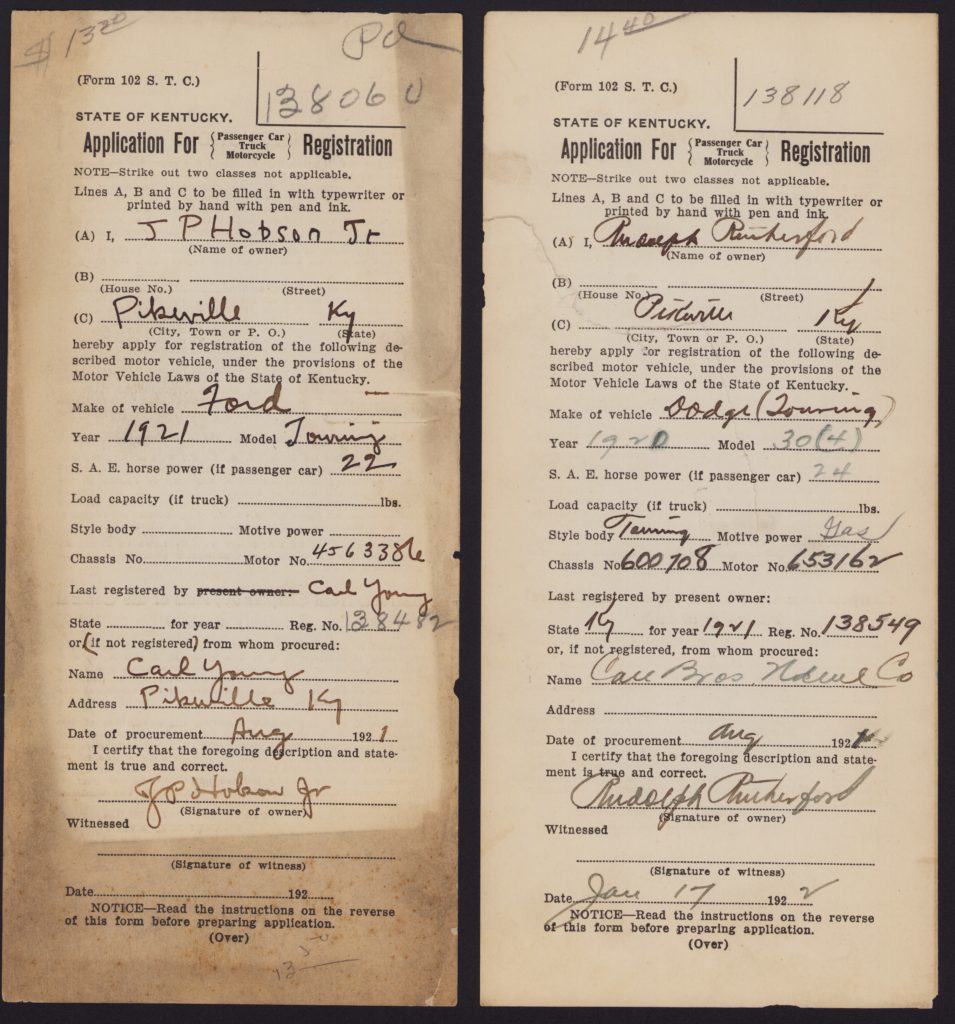 $ 13 20
Pd
(Form 102 S. T. C.)
138060
STATE OF KENTUCKY.
Application For { Passenger Car Truck Motorcycle } Registration
NOTE—Strike out two classes not applicable.
Lines A, B and C to be filled in with typewriter or
printed by hand with pen and ink.
(A) I, J P Hobson Jr
(Name of owner)
(B)
(House No.) (Street)
(C) Pikeville Ky
(City, Town or P. O.) (State)
hereby apply for registration of the following de-
scribed motor vehicle, under the provisions of the
Motor Vehicle Laws of the State of Kentucky.
Make of vehicle Ford
Year 1921 Model Touring
S. A. E. horse power (if passenger car) 22
Load capacity (if truck) lbs.
Style body Motive power
Chassis No. Motor No.
Last registered by present owner: Carl Young
State for year Reg. No. 138482
or (if not registered) from whom procured:
Name Carl Young
Address Pikeville Ky
Date of procurement Aug 1921
I certify that the foregoing description and state-
ment is true and correct.
J P Hobson Jr
(Signature of owner)
Witnessed
(Signature of witness)
Date 192
NOTICE—Read the instructions on the reverse
of this form before preparing application.
(Over)
14 40
(Form 102 S. T. C.)
138118
STATE OF KENTUCKY.
Application For { Passenger Car Truck Motorcycle } Registration
NOTE—Strike out two classes not applicable.
Lines A, B and C to be filled in with typewriter or
printed by hand with pen and ink.
(A) I, Rudolph Rutherford
(Name of owner)
(B)
(House No.) (Street)
(C) Pikeville Ky
(City, Town or P. O.) (State)
hereby apply for registration of the following de-
scribed motor vehicle, under the provisions of the
Motor Vehicle Laws of the State of Kentucky.
Make of vehicle Dodge (Touring)
Year 1920 Model 30(4)
S. A. E. horse power (if passenger car) 24
Load capacity (if truck) lbs.
Style body Touring Motive power Gas
Chassis No 600708 Motor No. 653162
Last registered by present owner:
State Ky for year 1921 Reg. No. 138549
or, if not registered, from whom procured:
Name Bros Co
Address
Date of procurement Aug 1921
I certify that the foregoing description and state-
ment is true and correct.
Rudolph Rutherford
(Signature of owner)
Witnessed
(Signature of witness)
Date Jan 17 1922
NOTICE—Read the instructions on the reverse
of this form before preparing application.
(Over)